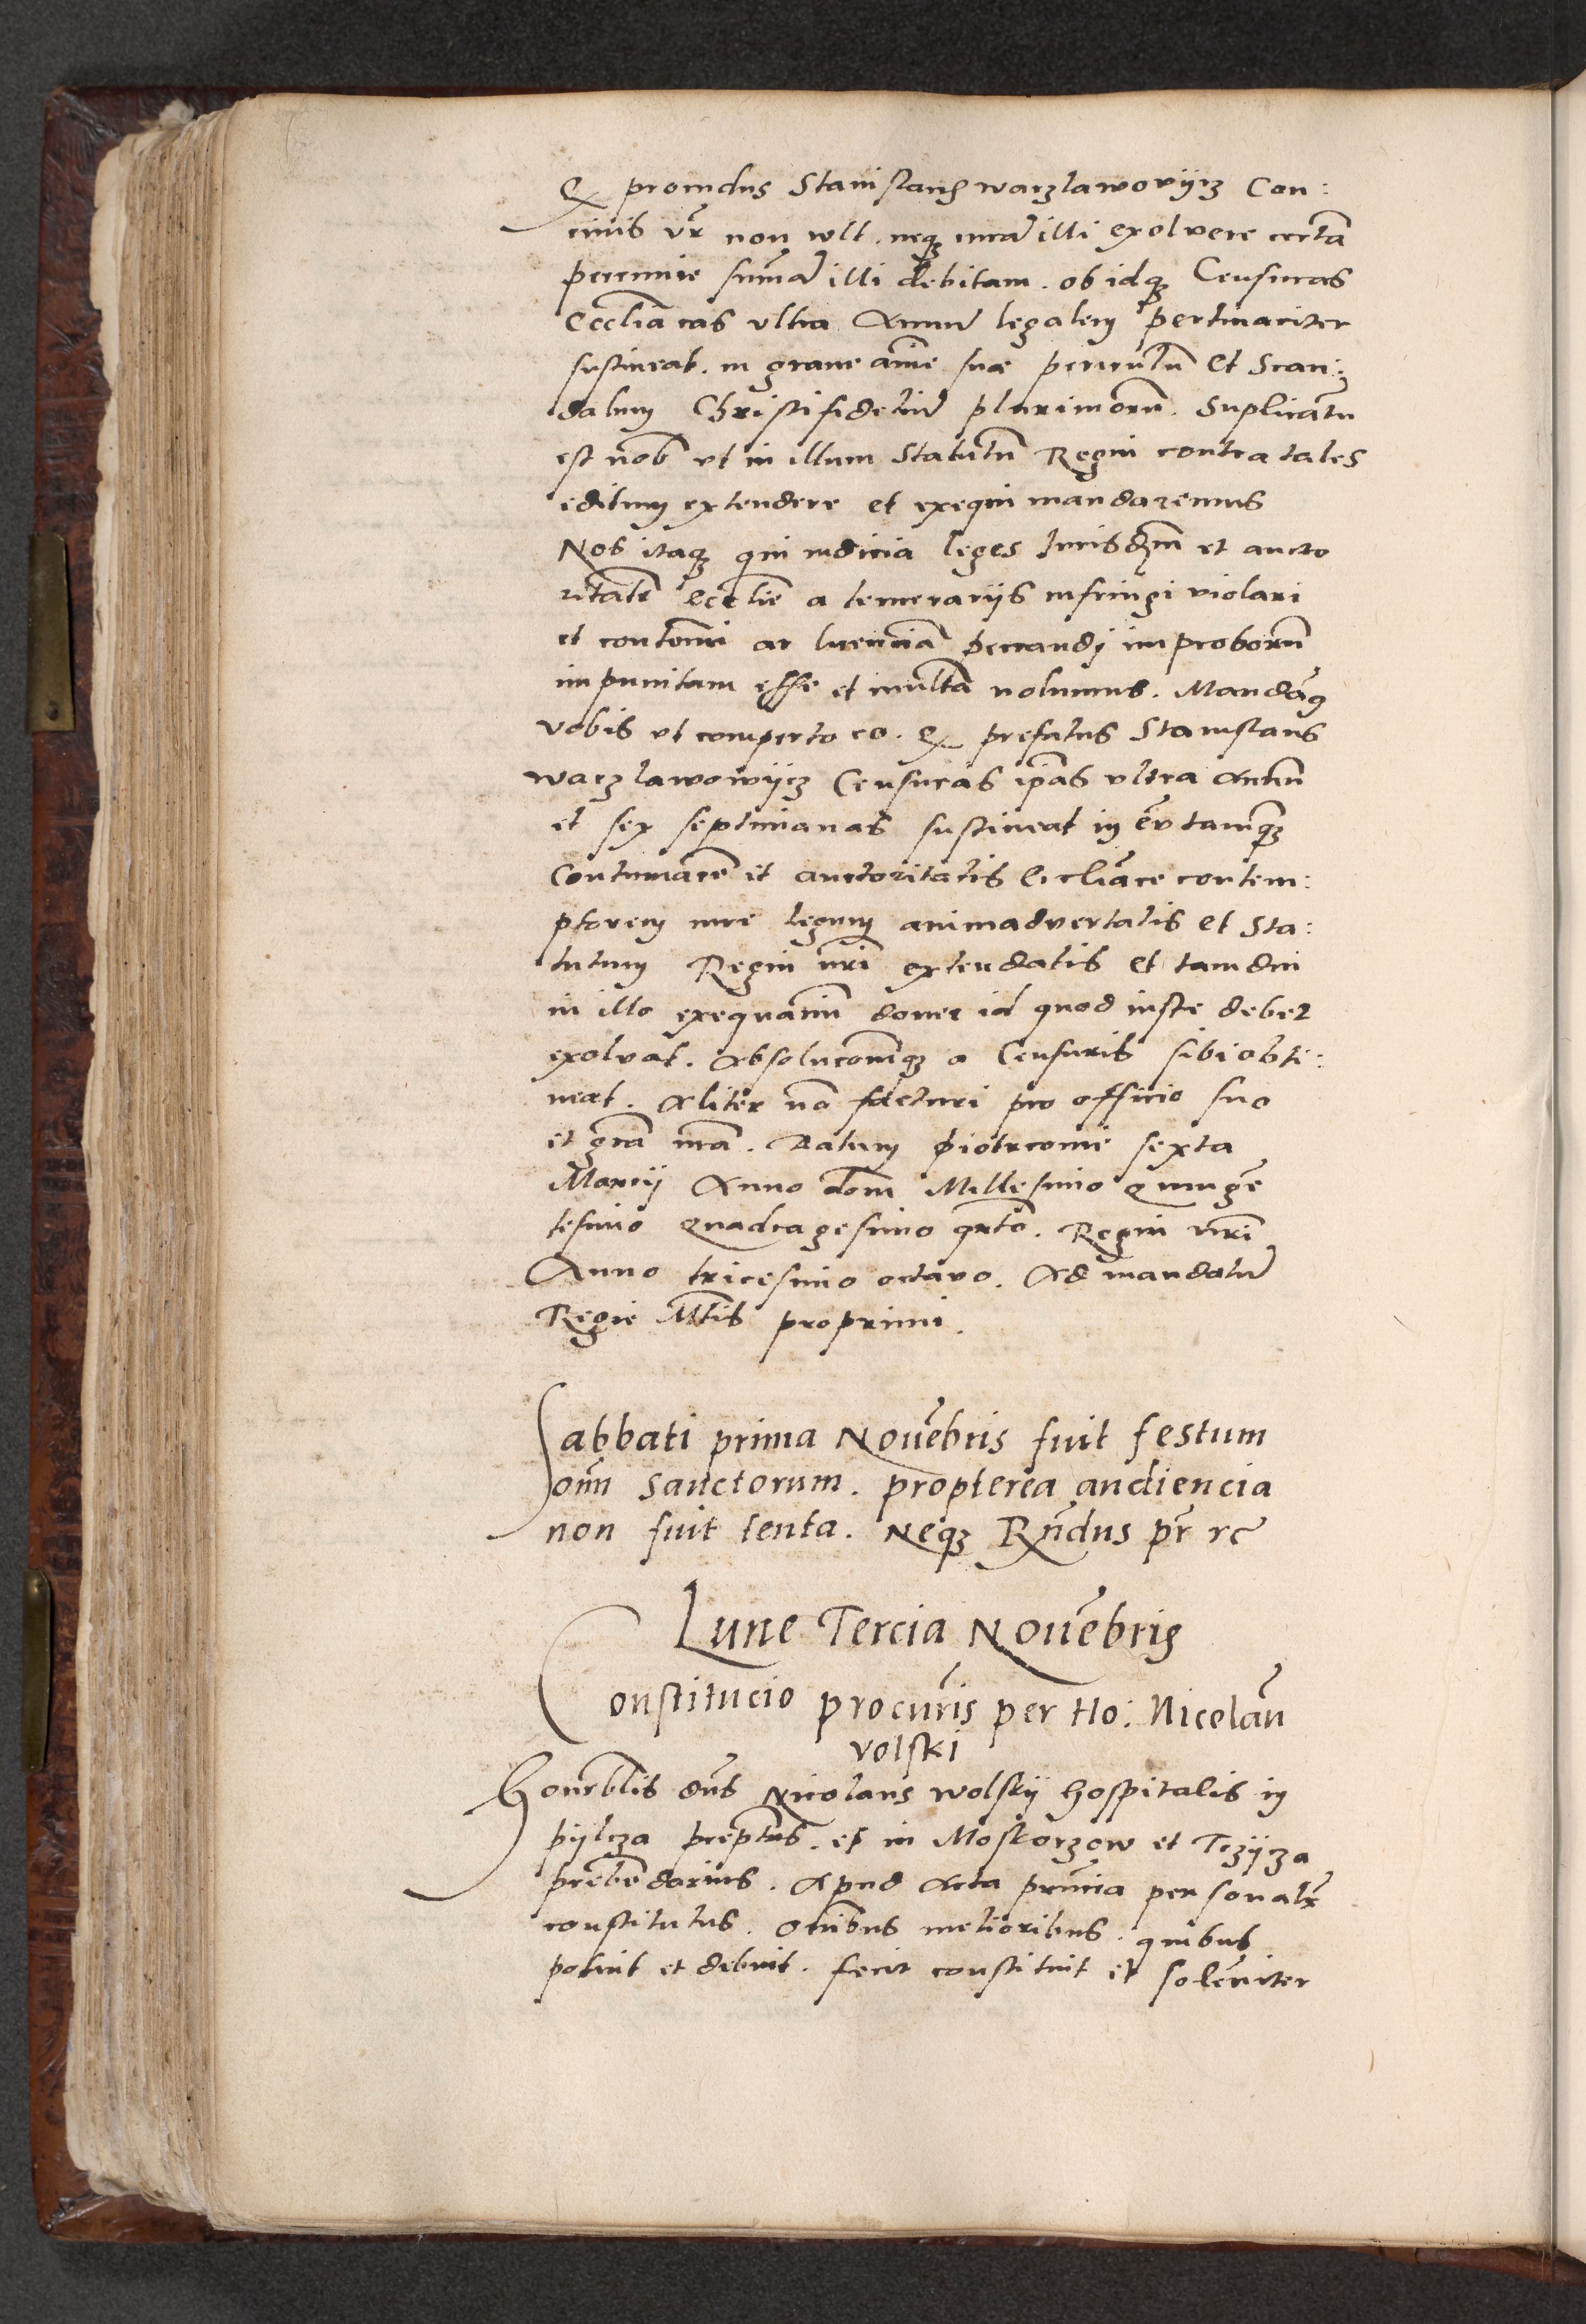 Q providus Stanislaus waczlawoviicz Con:
civis vr̃ non vult neqʒ curat illi exolvere certã
peccunie sum̃ã illi debitam. ob idqʒ Censuras
Eccl̃iãcas ultra Annũ legalem pertinaciter
sustineat. in grave aĩe sue periculũ Et Scan:
dalum Christifideliũ plurimorũ. Suplicatũ
est nob̃ ut in illum Statutũ Regni contra tales
editum extendere et exequi mandaremus
Nos itaqʒ qui iudicia leges Iurisdʒm̃ et aucto
ritatẽ eccl̃ie a temerariis infringi violari
et contemni ac licenciã peccandi improborũ
impunitam esse et inultã nolumus. Mandãꝯ
vobis ut comperto eo. Q prefatus Stanislaus
waczlawowiicz Censuras ip̃as ultra Annũ
et sex septimanas sustineat in eũ tamqʒ
Contumacẽ et auctoritatis Eccl̃iãce contem:
ptorem iure legum animadvertatis et Sta:
tutum Regni nr̃i extendatis et tamdiu
in illo exequamini donec id quod iuste debet
exolvat. Absoluc̃onemqʒ a Censuris sibi obti:
neat. Aliter nõ facturi pro officio suo
et gr̃a nr̃a. Datum piotrcovie sexta
Marcii Anno dom̃ Millesimo Quingẽ
tesimo Quadragesimo qr̃to. Regni nr̃i
Anno tricesimo octavo. Ad mandatũ
Regie Mt̃is proprium.
Sabbati prima Novẽbris fuit festum
om̃ sanctorum. propterea audiencia
non fuit tenta. Neqʒ Rñdus pr̃ rc̃
Lune Tercia Novẽbris
Constitucio procur̃is per Ho: Nicolaũ
volski
Honorabl̃is dñs Nicolaus wolskii hospitalis in
piilcza prept̃us. et in Moskorzow et Tcziicza
prebẽdarius. Apud Acta prñcia personalr̃
constitutus. Om̃ibus melioribus. quibus
potuit et debuit. fecit constituit et solẽniter